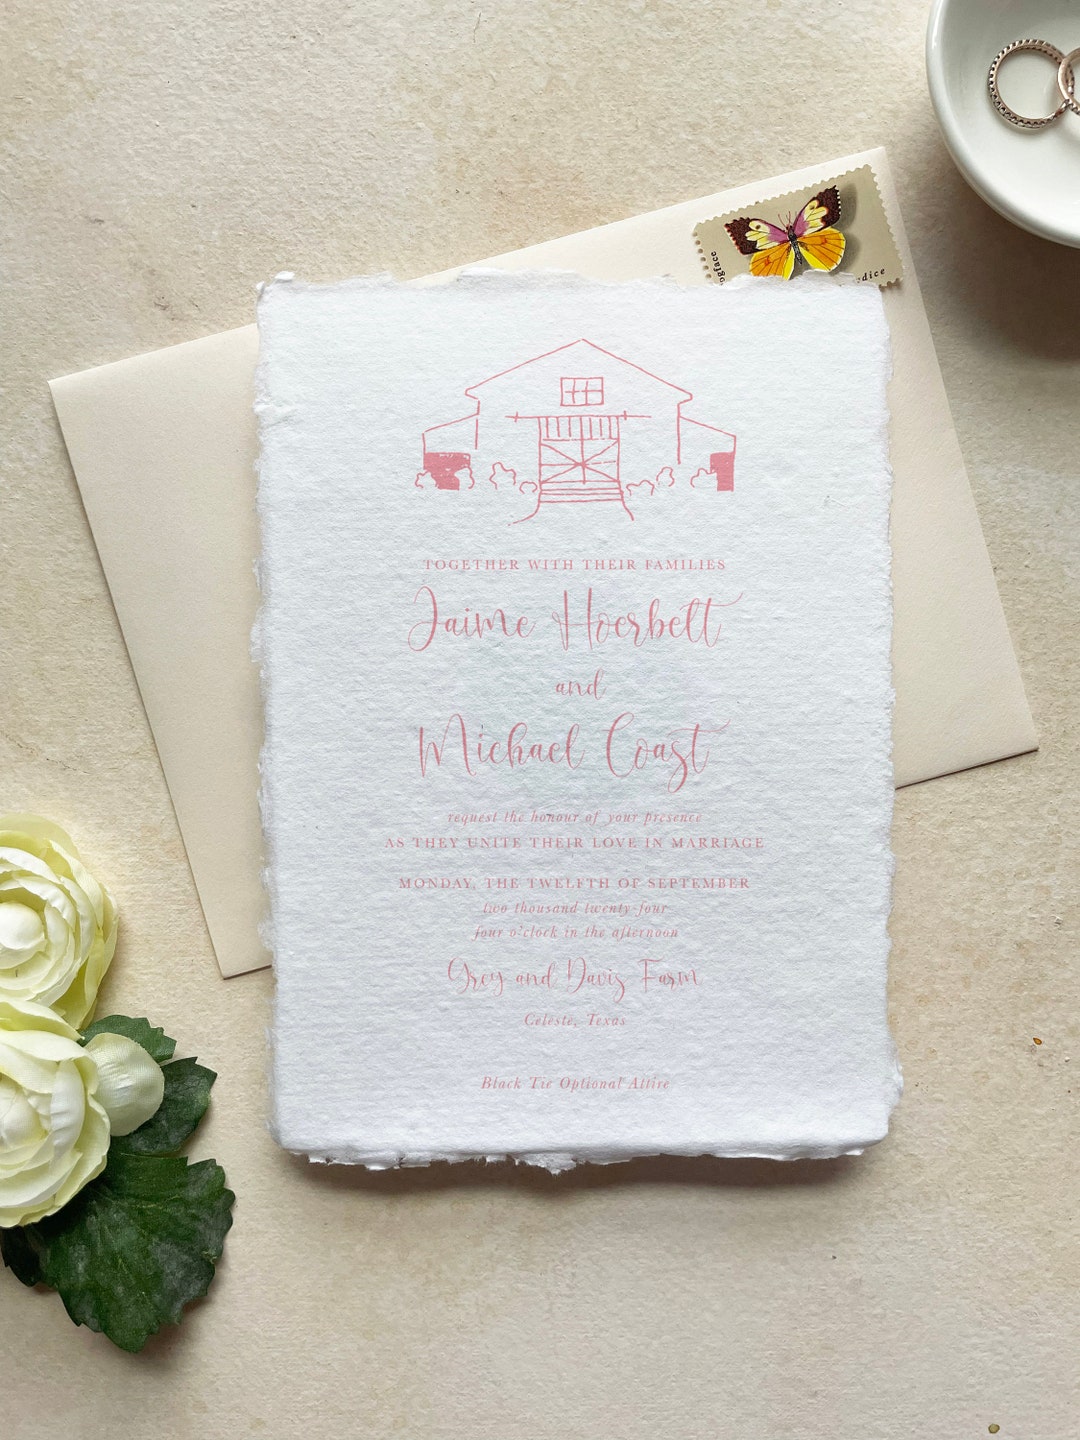 dice
TOGETHER WITH THEIR FAMILIES
Jaime Hoerbelt
and
Michael Coast
request the honour of your presence
AS THEY UNITE THEIR LOVE IN MARRIAGE
MONDAY, THE TWELFTH OF SEPTEMBER
two thousand twenty-four
four o'clock in the afternoon
Grey and Davis Farm
Celeste, Texas
Black Tie Optional Attire